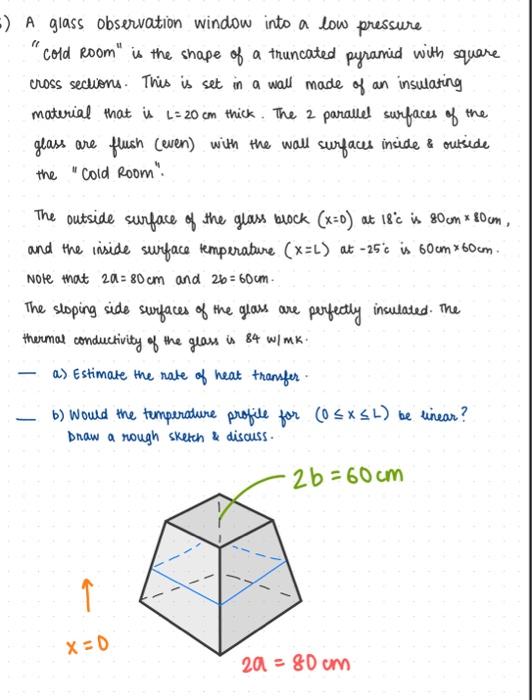 ) A glass observation window into a low pressure
"Cold Room" is the shape of a truncated pyramid with square
cross sections. This is set in a wall made of an insulating
material that is L=20 cm thick. The 2 parallel surfaces of the
glass are flush (even) with the wall surfaces inside & outside
the "Cold Room".
The outside surface of the glass block (x=0) at 18°c is 80cm × 80cm,
and the inside surface temperature (x=L) at -25°c is 60cm × 60cm.
Note that 2a = 80cm and 2b = 60cm.
The sloping side surfaces of the glass are perfectly insulated. The
thermal conductivity of the glass is 84 W/mK.
— a) Estimate the rate of heat transfer.
— b) Would the temperature profile for (0 ≤ x ≤ L) be linear?
Draw a rough sketch & discuss.
2b = 60 cm
x = 0
2a = 80 cm